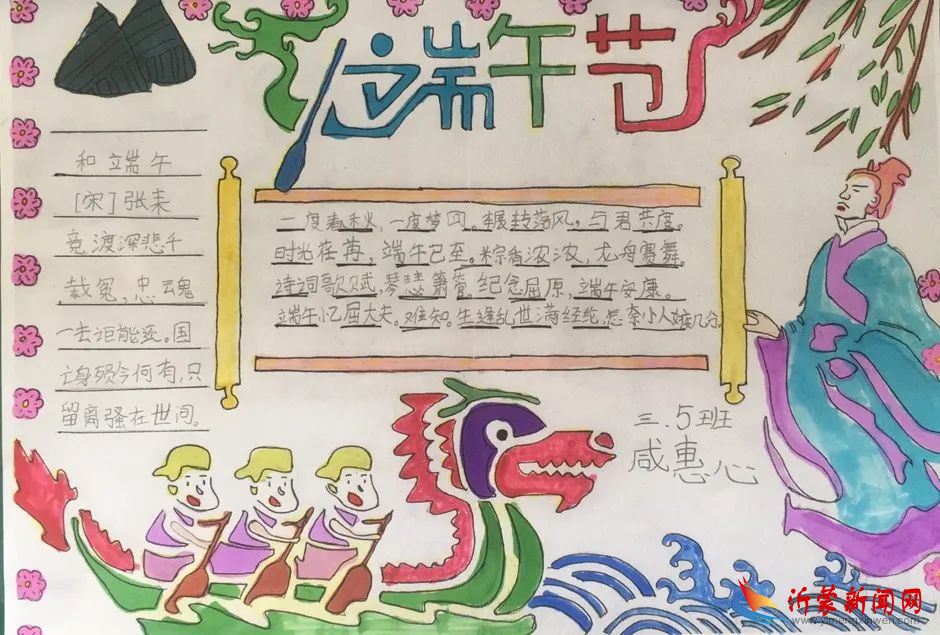 端午节
和端午
[宋]张耒
竞渡深悲千
载冤,忠魂
一去讵能还。国
亡身殒今何有,只
留离骚在世间。
一度春秋,一度梦回。辗转落风,与君共度。
时光荏苒,端午已至。粽香浓浓,龙舟赛舞。
诗词歌赋,琴瑟箫管。纪念屈原,端午安康。
端午忆屈大夫。难知。生逢乱世满经纶,怎奈小人嫉几分
三.5班
咸惠心
沂蒙新闻网
www.yimengxinwen.com